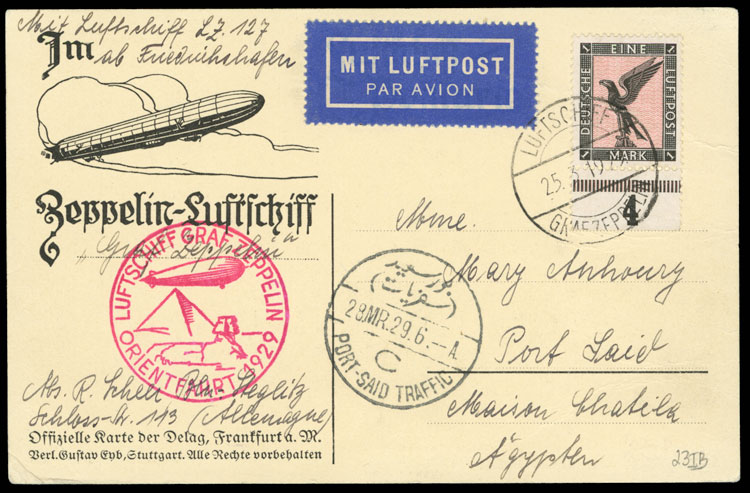 Mit Luftschiff LZ 127
Im
ab Friedrichshafen
MIT LUFTPOST
PAR AVION
EINE
DEUTSCHE
LUFTPOST
1 MARK 1
4
LUFTSCHIFF
25.3.1929
GRAF ZEPPELIN
Zeppelin-Luftschiff
„Graf Zeppelin"
LUFTSCHIFF GRAF ZEPPELIN
ORIENTFAHRT 1929
بور سعيد
28.MR.29.6.-A
C
PORT-SAID TRAFFIC
Mme.
Mary Anhoury
Port Said
Maison Chatila
Ägypten
Abs. R. Scheel Bln-Steglitz
Schloss-Str. 113 (Allemagne)
Offizielle Karte der Delag, Frankfurt a. M.
Verl. Gustav Eyb, Stuttgart. Alle Rechte vorbehalten
23IB